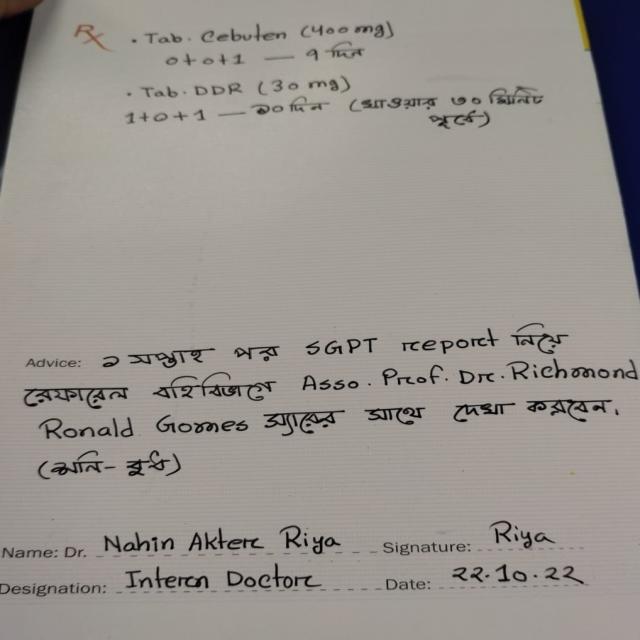 Rx • Tab. Cebuten (400mg)
0+0+1 — ৭ দিন
• Tab. DDR (30 mg)
1+0+1 — ১০ দিন (খাওয়ার ৩০ মিনিট
পূর্বে)
Advice: ১ সপ্তাহ পর SGPT report নিয়ে
রেফারেল বহিঃবিভাগে Asso. Prof. Dr. Richmond
Ronald Gomes স্যারের সাথে দেখা করবেন।
(শনি - বুধ)
Name: Dr. Nahin Akter Riya Signature: Riya
Designation: Intern Doctor Date: 22.10.22